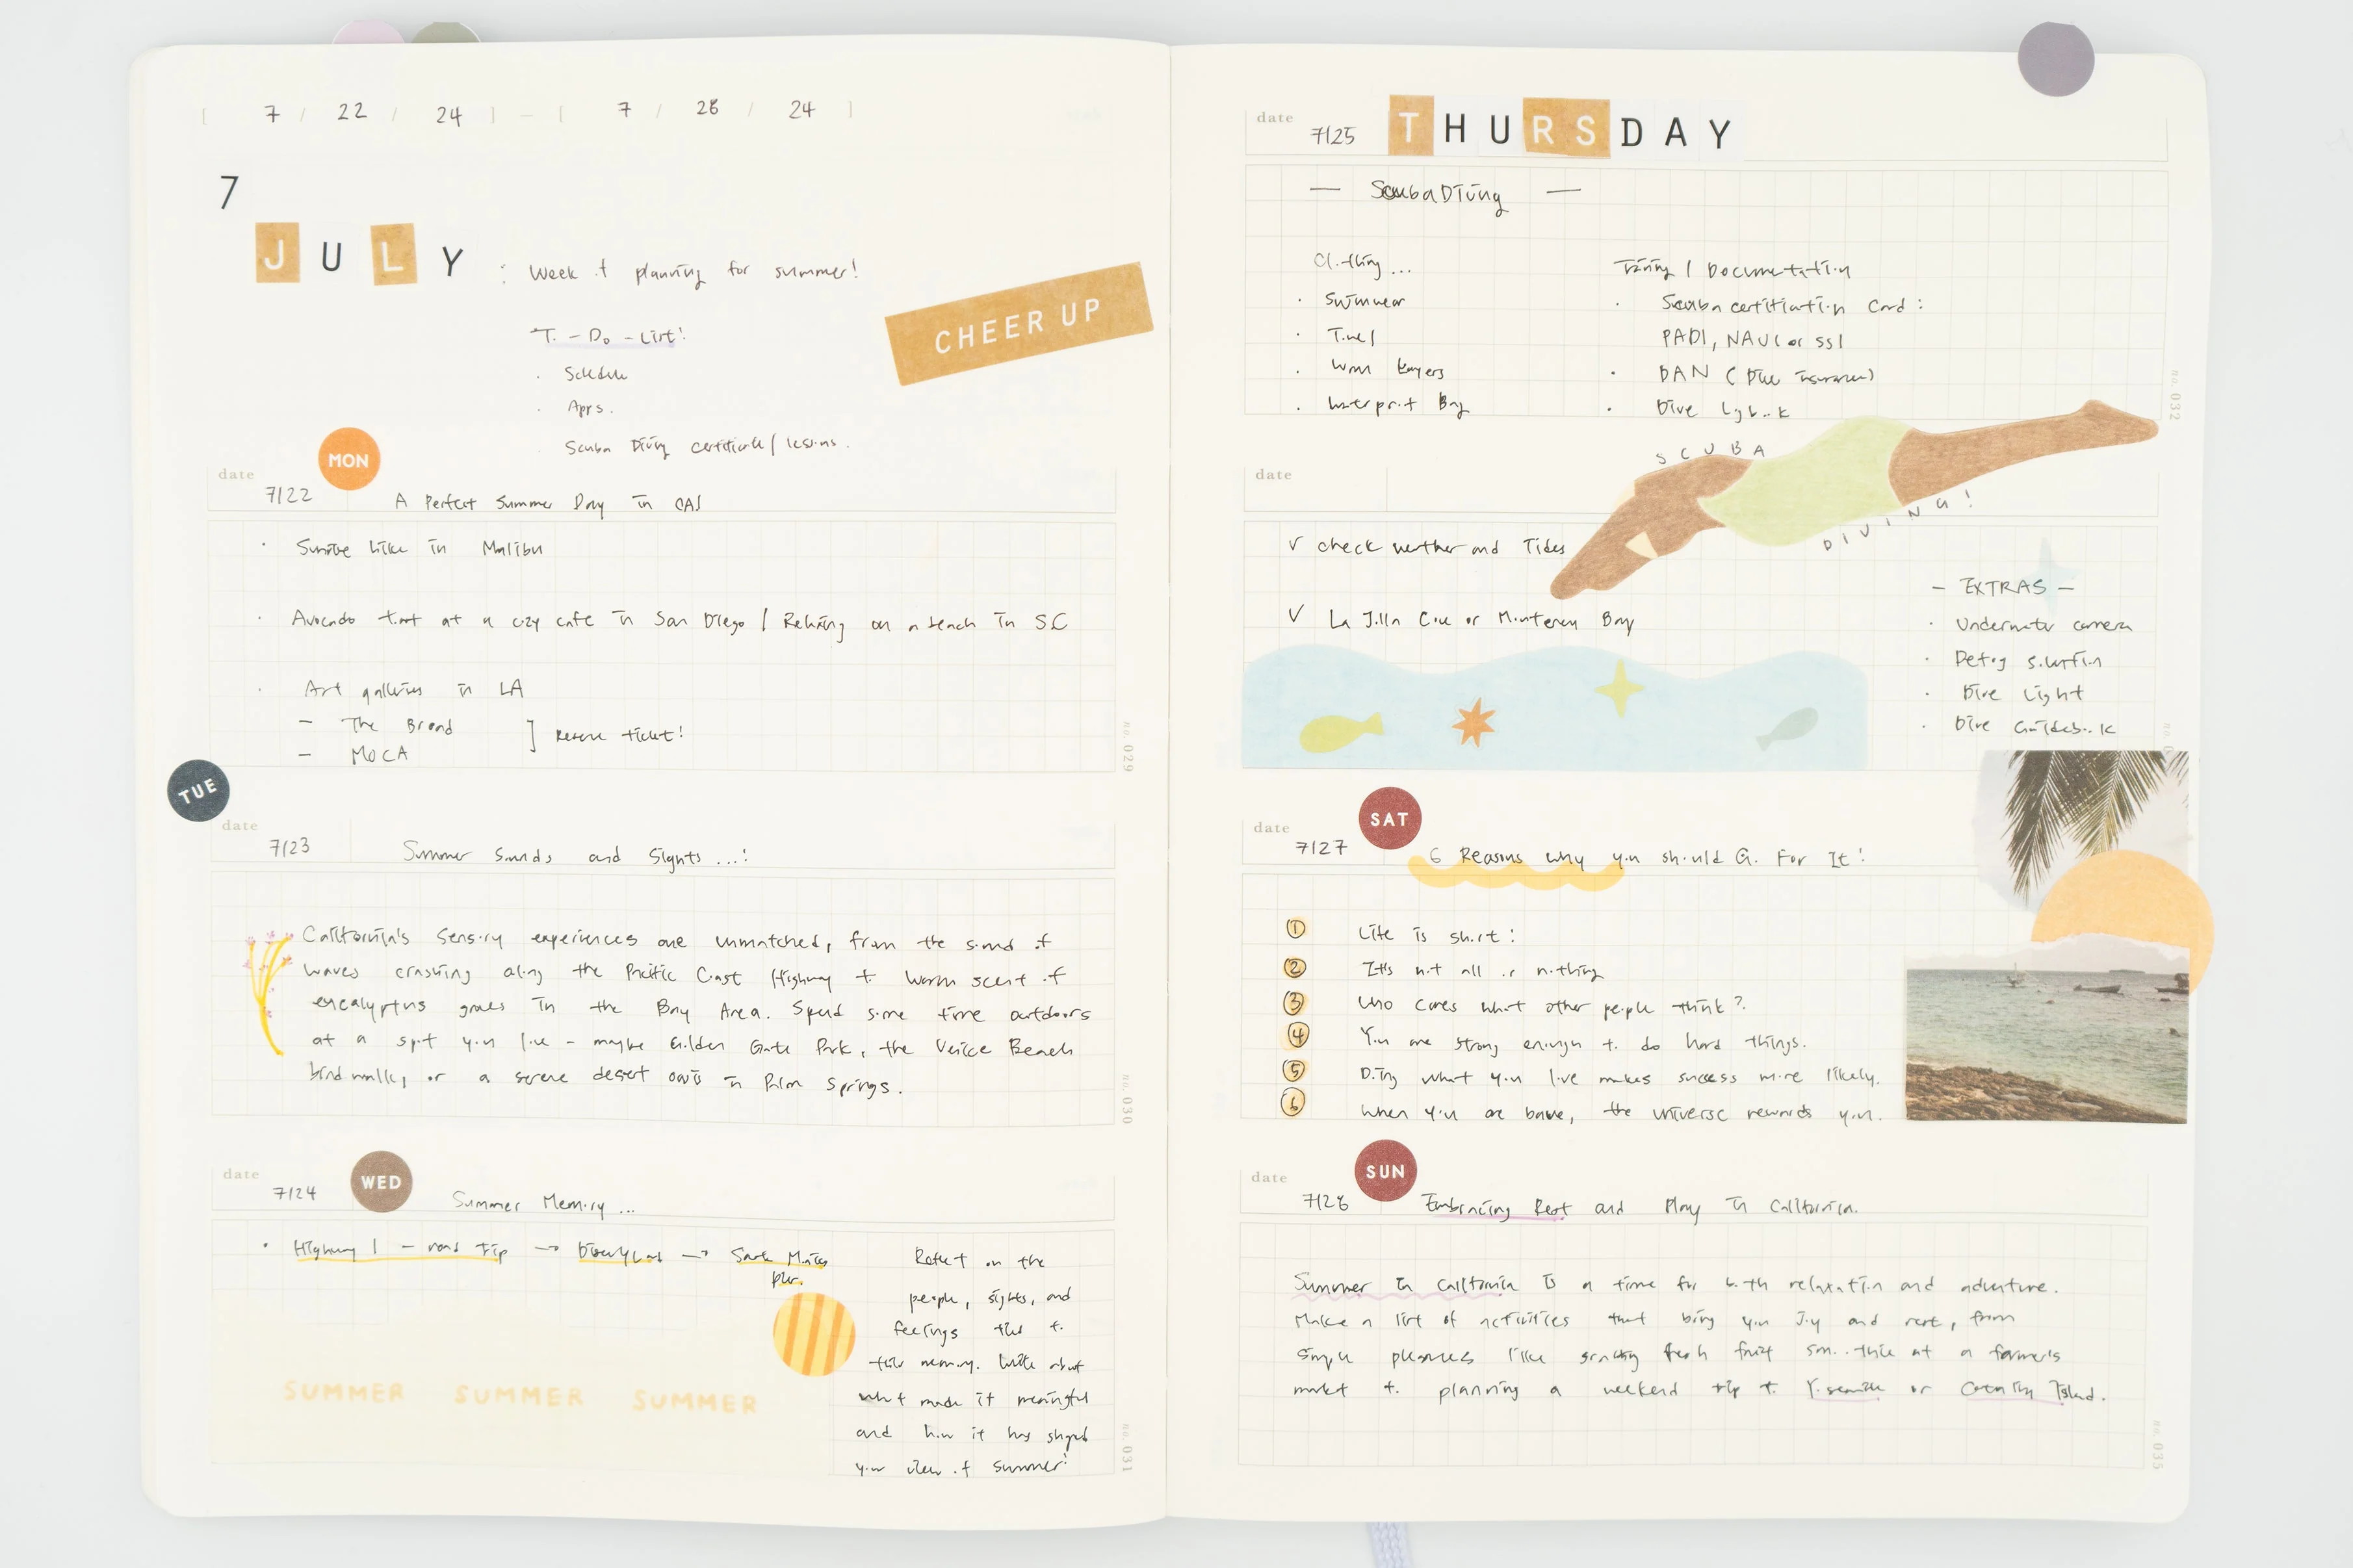 [ 7 / 22 / 24 ] - [ 7 / 28 / 24 ]
7
JULY : Week of planning for summer!
CHEER UP
"To-Do-List!
· Schedule
· Apps.
· Scuba Diving certificate/lessons.
MON
date 7/22 A Perfect Summer Day in CA!
· Sunrise hike in Malibu
· Avocado toast at a cozy cafe in San Diego / Relaxing on a beach in SC
· Art galleries in LA
- The Broad
- MOCA
] Reserve ticket!
no. 029
TUE
date 7/23 Summer Sounds and Sights ...!
California's sensory experiences are unmatched, from the sound of
waves crashing along the Pacific Coast Highway to warm scent of
eucalyptus groves in the Bay Area. Spend some time outdoors
at a spot you love - maybe Golden Gate Park, the Venice Beach
boardwalk, or a serene desert oasis in Palm Springs.
no. 030
date 7/24 WED Summer Memory...
· Highway 1 - road trip → Disneyland → Santa Monica
pier.
SUMMER SUMMER SUMMER
Reflect on the
people, sights, and
feelings tied to
this memory. Write about
what made it meaningful
and how it has shaped
your view of summer!
no. 031
date 7/25 THURSDAY
— Scuba Diving —
Clothing...
· Swimwear
· Towel
· Warm layers
· Waterproof Bag
Training / Documentation
· Scuba certification Card:
PADI, NAUI or SSI
· DAN (Dive insurance)
· Dive Logbook
no. 032
SCUBA
DIVING!
date
V check weather and Tides
V La Jolla Cove or Monterey Bay
- EXTRAS -
· Underwater camera
· Defog solution
· Dive Light
· Dive Guidebook
no.
SAT
date 7/27 6 Reasons why you should Go For It!
① Life is short!
② It's not all or nothing
③ Who cares what other people think?
④ You are strong enough to do hard things.
⑤ Doing what you love makes success more likely.
⑥ When you are brave, the universe rewards you.
SUN
date 7/28 Embracing Rest and Play in California.
Summer in California is a time for both relaxation and adventure.
Make a list of activities that bring you joy and rest, from
simple pleasures like grabbing fresh fruit smoothie at a farmer's
market to planning a weekend trip to Yosemite or Catalina Island.
no. 035